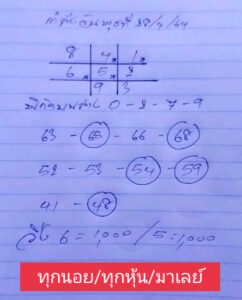 คำชี้ วันพุธที่ 28/4/64
8 4 1
6 5 2
9 3
พิกัดบนล่าง 0-2-7-9
63 - 65 - 66 - 68
52 - 53 - 54 - 59
41 - 48
วิ่ง 6 = 1,000 / 5 = 1,000
ทุกนอย/ทุกหุ้น/มาเลย์